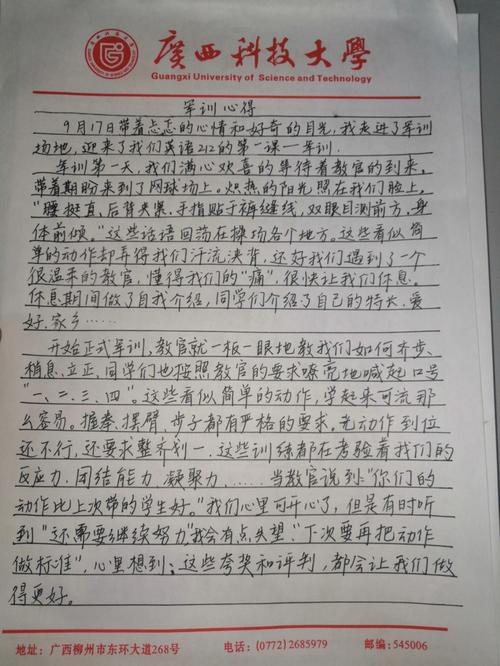 广西科技大学
Guangxi University of Science and Technology
军训心得
9月17日带着忐忑的心情和好奇的目光,我走进了军训
场地,迎来了我们英语212的第一课—军训.
军训第一天,我们满心欢喜的等待着教官的到来,
带着期盼来到了网球场上。炽热的阳光照在我们脸上,
"腰挺直,后背夹紧,手指贴于裤缝线,双眼目测前方,身
体前倾。"这些话语回荡在操场各个地方。这些看似简
单的动作却弄得我们汗流浃背,还好我们遇到了一个
很温柔的教官,懂得我们的"痛",很快让我们休息。
休息期间做了自我介绍,同学们介绍了自己的特长、爱
好、家乡……
开始正式军训,教官就一板一眼地教我们如何齐步、
稍息、立正,同学们也按照教官的要求嘹亮地喊起口号
"一、二、三、四"。这些看似简单的动作,学起来可流那
么容易。握拳、摆臂、步子都有严格的要求。光动作到位
还不行,还要求整齐划一,这些训练都在考验着我们的
反应力、团结能力、凝聚力,……当教官说到:"你们的
动作比上次带的学生好。"我们心里可开心了,但是有时听
到"还需要继续努力"我会有点失望。"下次要再把动作
做标准",心里想到:这些夸奖和评判,都会让我们做
得更好。
地址:广西柳州市东环大道268号 电话:(0772)2685979 邮编:545006